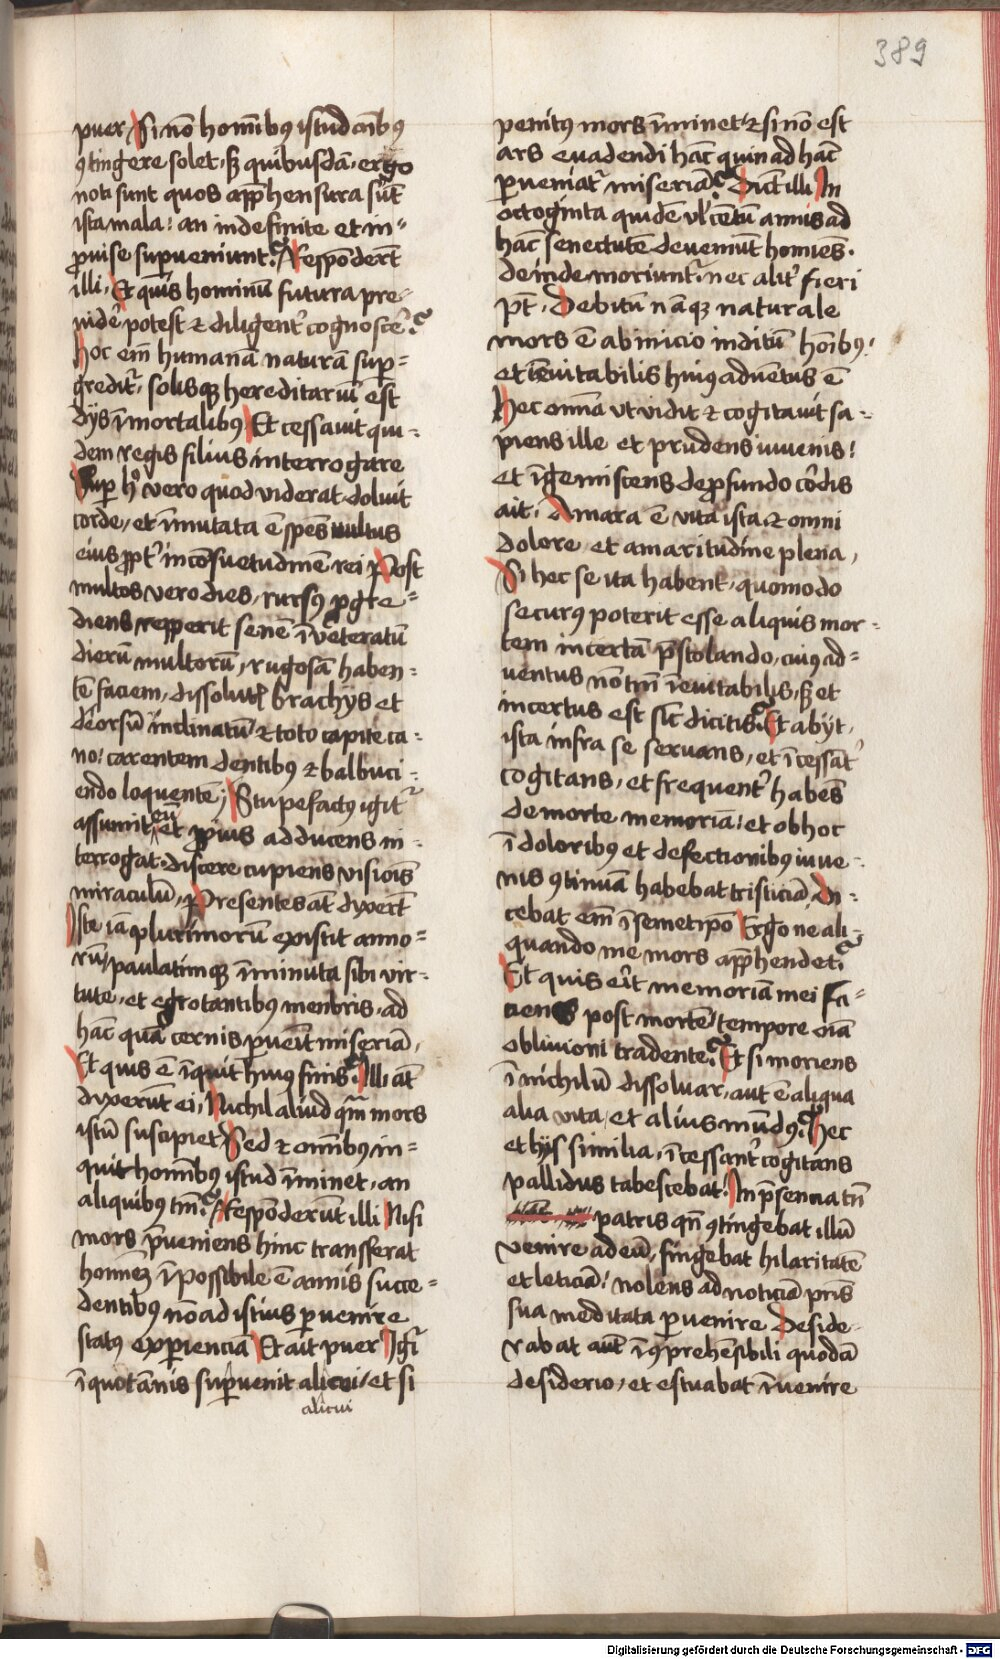 389
puer Si nō homībꝰ istud oībꝰ
ꝯtingere solet, sꝫ quibusdā. ergo
noti sunt quos app̄hensura sūt
ista mala: an indefinite et in-
prouise superueniunt? Respōderūt
illi. Et quis hominū futura pre-
uidē potest ⁊ diligent̄ cognoscē?
Hoc em̄ humanā naturā sup-
gredit̄, solisqꝫ hereditariū est
dijs īmortalibꝰ Et cessauit qui-
dem regis filius interrogare
Sup hͦ vero quod viderat doluit
corde, et īmutata ē spēs vultus
eius ꝓpt̄ incōsuetudinē rei Post
multos vero dies, rursꝰ ꝓgre-
diens repperit senē īueteratū
dierū multorū, rugosā haben-
tē faciem, dissolut̄ brachijs et
deorsū inclinatū ⁊ toto capite ca-
no: carentem dentibꝰ ⁊ balbuci-
endo loquentē; Stupefactꝰ igit̄
eū
assumit et propius adducens in-
terrogat. discere cupiens visiōis
miraculū, Presentes aūt dixerūt
Iste iā plurimorū existit anno-
rū, paulatimqꝫ īminuta sibi vir-
tute, et egrotantibus menbris, ad
hāc quā cernis puenit miseriā,
Et quis ē īquit huiꝰ finis? Illi aūt
dixerūt ei, Nichil aliud qm̄ mors
istū suscipiet Sed ⁊ omībus in-
quit homībꝰ istud īminet, an
aliquibus tm̄? Respōderūt illi Nisi
mors p̄ueniens hinc transferat
hominē īpossibile ē annis succe-
dentibꝰ nō ad istius peruenire
status experienciā Et ait puer Igit̄
ī quot ānis superuenit alicui, et si
alicui
penitꝰ mors īminet, ⁊ si nō est
ars euadendi hāc quin ad hāc
perueniat̄ miseriā? Dicūt illi In
octoginta quidē vl̄ centū annis ad
hāc senectutē deueniūt homīes.
deinde moriunt̄, nec alit̄ fieri
pt̄. Debitū nāqꝫ naturale
mors ē ab inicio inditū hoībꝰ:
et īeuitabilis huiꝰ aduētus ē
Hec omīa vt vidit ⁊ cogitauit sa-
piens ille et prudens iuuenis:
et īgemiscens de ꝓfundo cordis
ait. Amara ē vita ista, ⁊ omni
dolore, et amaritudine plena,
Si hec se ita habent, quomodo
securꝰ poterit esse aliquis mor-
tem incertā p̄stolando, cuiꝰ ad-
uentus nō tm̄ īeuitabilis, sꝫ et
incertus est sic̄ dicitis? Et abijt,
ista infra se seruans, et īcessāt̄
cogitans, et frequent̄ habēs
de morte memoriā: et ob hoc
ī doloribus et defectionibꝰ iuue-
nis ꝯtinuā habebat tristiciā, Di-
cebat em̄ ī semetipō Ergo ne ali-
quando me mors app̄hendet?
Et quis erit memoriam mei fa-
ciens post mortē, tempore oīa
obliuioni tradente? Et si moriens
ī nichilū dissoluar, aut ē aliqua
alia vita, et alius mūdꝰ? Hec
et hijs similia, īcessant̄ cogitans
pallidus tabescebat: In p̄sencia tn̄
patris qn̄ ꝯtingebat illū
venire ad eū, fingebat hilaritatē
et leticiā: nolens ad noticiā pris̄
sua meditata peruenire Deside-
rabat aūt īꝯprehēsibili quodā
desiderio, et estuabat īuenire
Digitalisierung gefördert durch die Deutsche Forschungsgemeinschaft - DFG